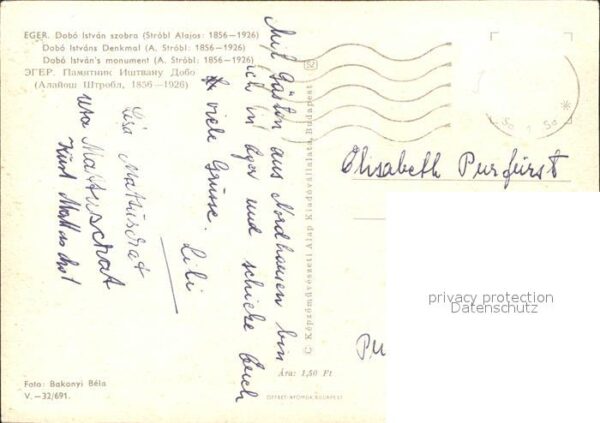 EGER. Dobó István szobra (Stróbl Alajos: 1856-1926)
Dobó Istváns Denkmal (A. Stróbl: 1856-1926)
Dobó István's monument (A. Stróbl: 1856-1926)
ЭГЕР. Памятник Иштвану Добо
(Алайош Штробл, 1856-1926)
Mit Gästen aus Nordhausen bin
ich in Eger und schicke Euch
viele Grüsse. Lili
Lisa Mattuschat
Uta Mattuschat
Kurt
C Képzőművészeti Alap Kiadóvállalata, Budapest
Elisabeth Purfürst
privacy protection
Datenschutz
Pu
Ára: 1,50 Ft
Foto: Bakonyi Béla
V.-32/691.
OFFSET-NYOMDA BUDAPEST